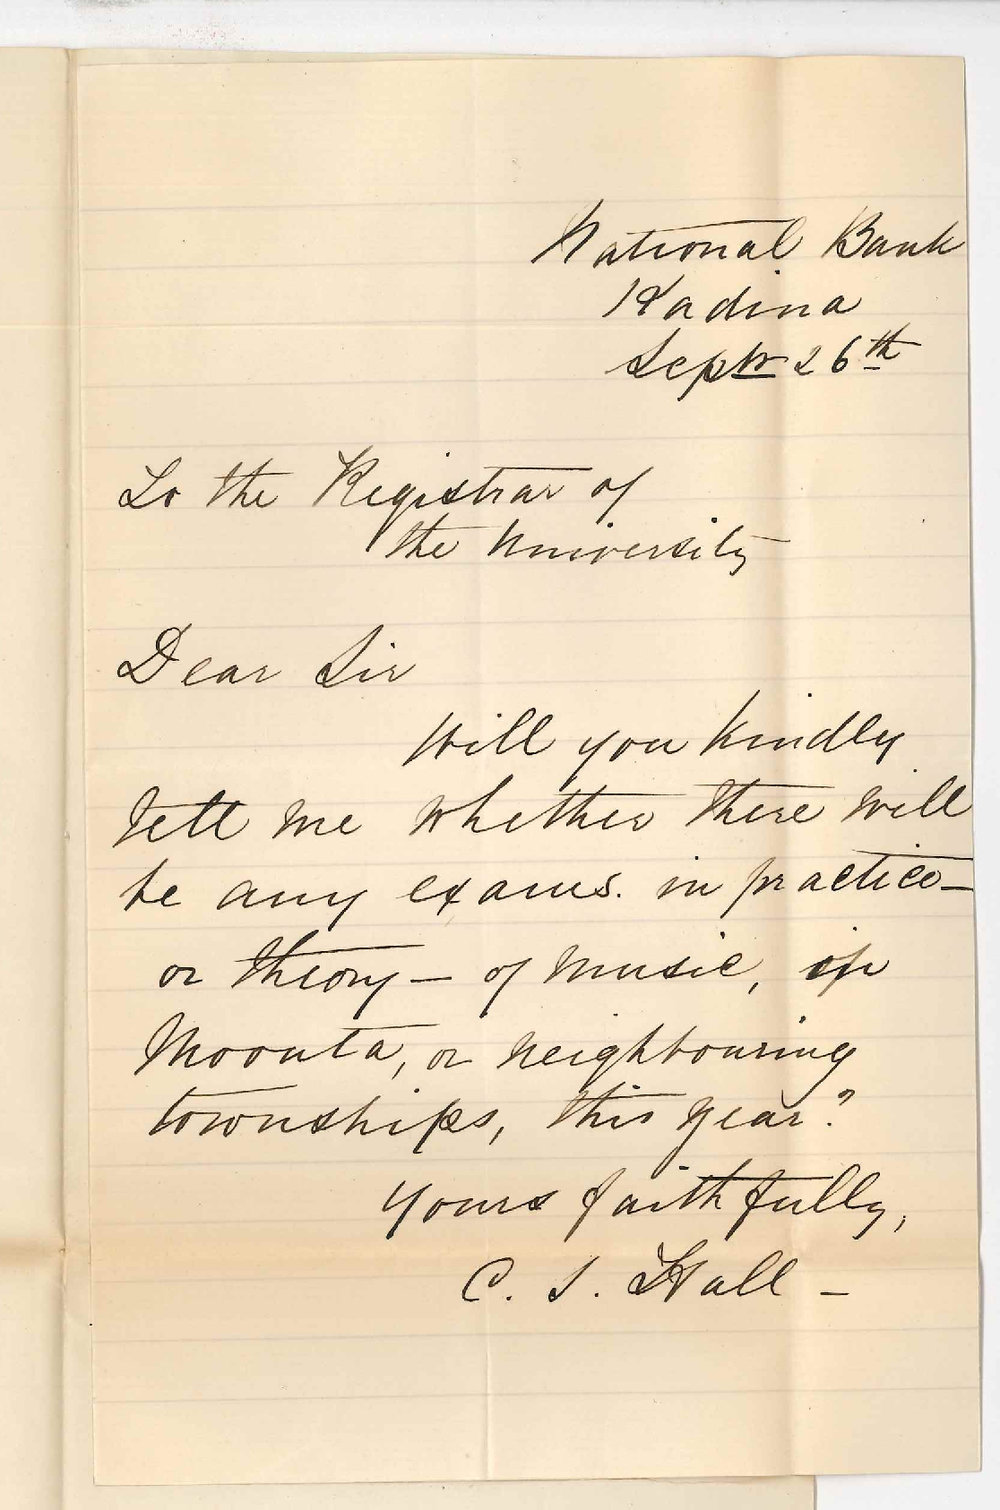 National Bank
Kadina
Septr 26th
To the Registrar of
the University
Dear Sir
Will you kindly
tell me whether there will
be any exams. in practice—
or theory — of music, in
Moonta, or neighbouring
townships, this year?
Yours faithfully,
C. S. Hall —